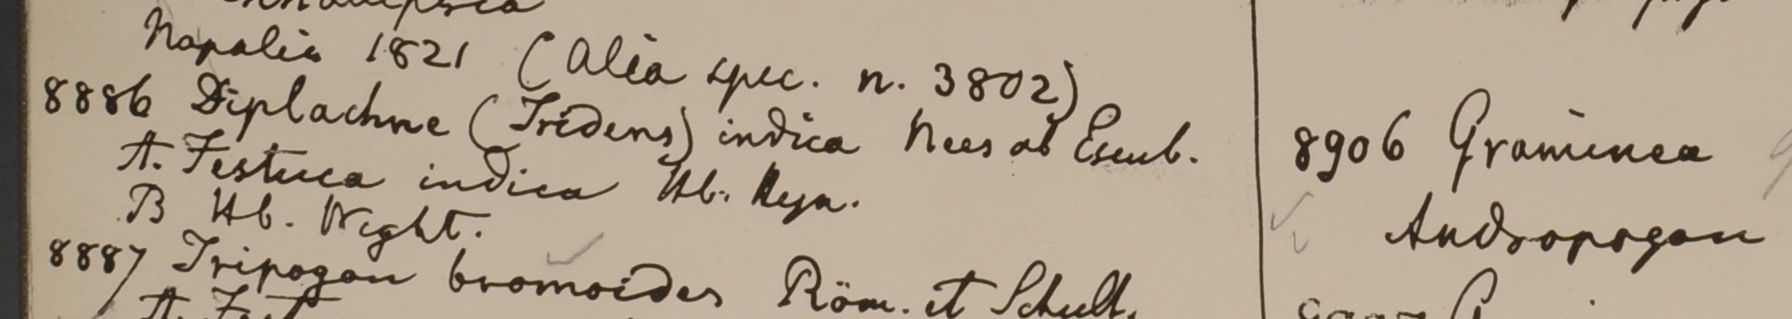 Napalia 1821 (Alia spec. n. 3802)
8886 Diplachne (Tridens) indica Nees ab Esenb.
A. Festuca indica Hb. Heyn.
B Hb. Wight.
8887 Tripogon bromoides Röm. et Schult.
A. Fest
8906 Graminea
Andropogon